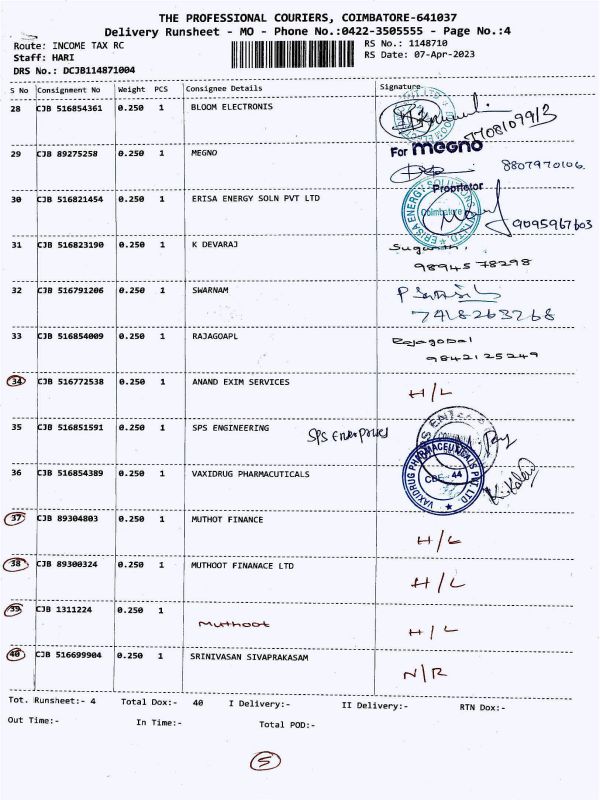 THE PROFESSIONAL COURIERS, COIMBATORE-641037
Delivery Runsheet - MO - Phone No.:0422-3505555 - Page No.:4
Route: INCOME TAX RC RS No.: 1148710
Staff: HARI RS Date: 07-Apr-2023
DRS No.: DCJB114871004
S No Consignment No Weight PCS Consignee Details Signature
28 CJB 516854361 0.250 1 BLOOM ELECTRONIS
29 CJB 89275258 0.250 1 MEGNO For MEGNO
8807970106
Proprietor
30 CJB 516821454 0.250 1 ERISA ENERGY SOLN PVT LTD ERISA ENERGY SOLUTIONS PVT LTD Coimbatore
9095967603
31 CJB 516823190 0.250 1 K DEVARAJ
98945 78298
32 CJB 516791206 0.250 1 SWARNAM
7418263268
33 CJB 516854009 0.250 1 RAJAGOAPL Rajagopal
9842125249
34 CJB 516772538 0.250 1 ANAND EXIM SERVICES H/L
35 CJB 516851591 0.250 1 SPS ENGINEERING SPS Enterprises
36 CJB 516854389 0.250 1 VAXIDRUG PHARMACUTICALS VAXIDRUG PHARMACEUTICALS PVT LTD CBE - 44
37 CJB 89304803 0.250 1 MUTHOT FINANCE H/L
38 CJB 89300324 0.250 1 MUTHOOT FINANACE LTD H/L
39 CJB 1311224 0.250 1 Muthoot H/L
40 CJB 516699904 0.250 1 SRINIVASAN SIVAPRAKASAM N/R
Tot. Runsheet:- 4 Total Dox:- 40 I Delivery:- II Delivery:- RTN Dox:-
Out Time:- In Time:- Total POD:-
5